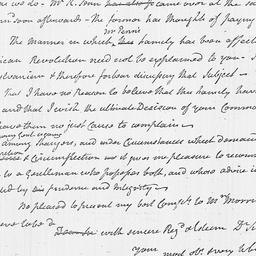 we do - Mr. R. Penn came over at the sa
soon afterwards - The former has thoughts of paying
Mr Penns
The Manner in which family has been affect
ican Revolution need not be explained to you -
and therefore forbear dwelling on that Subject -
that I have no reason to believe that the family have
and that I wish the ultimate Decision of your Common
leave them no just Cause to complain -
among Strangers, and under Circumstances which demand
& Circumspection it gives me pleasure to recom
to a Gentleman who possesses both, and whose advice is
ed by his prudence and Integrity -
Be pleased to present my best Compts. to Mrs Morris
with sincere Regd. & Esteem Dr Si
your most obt. & very Hble